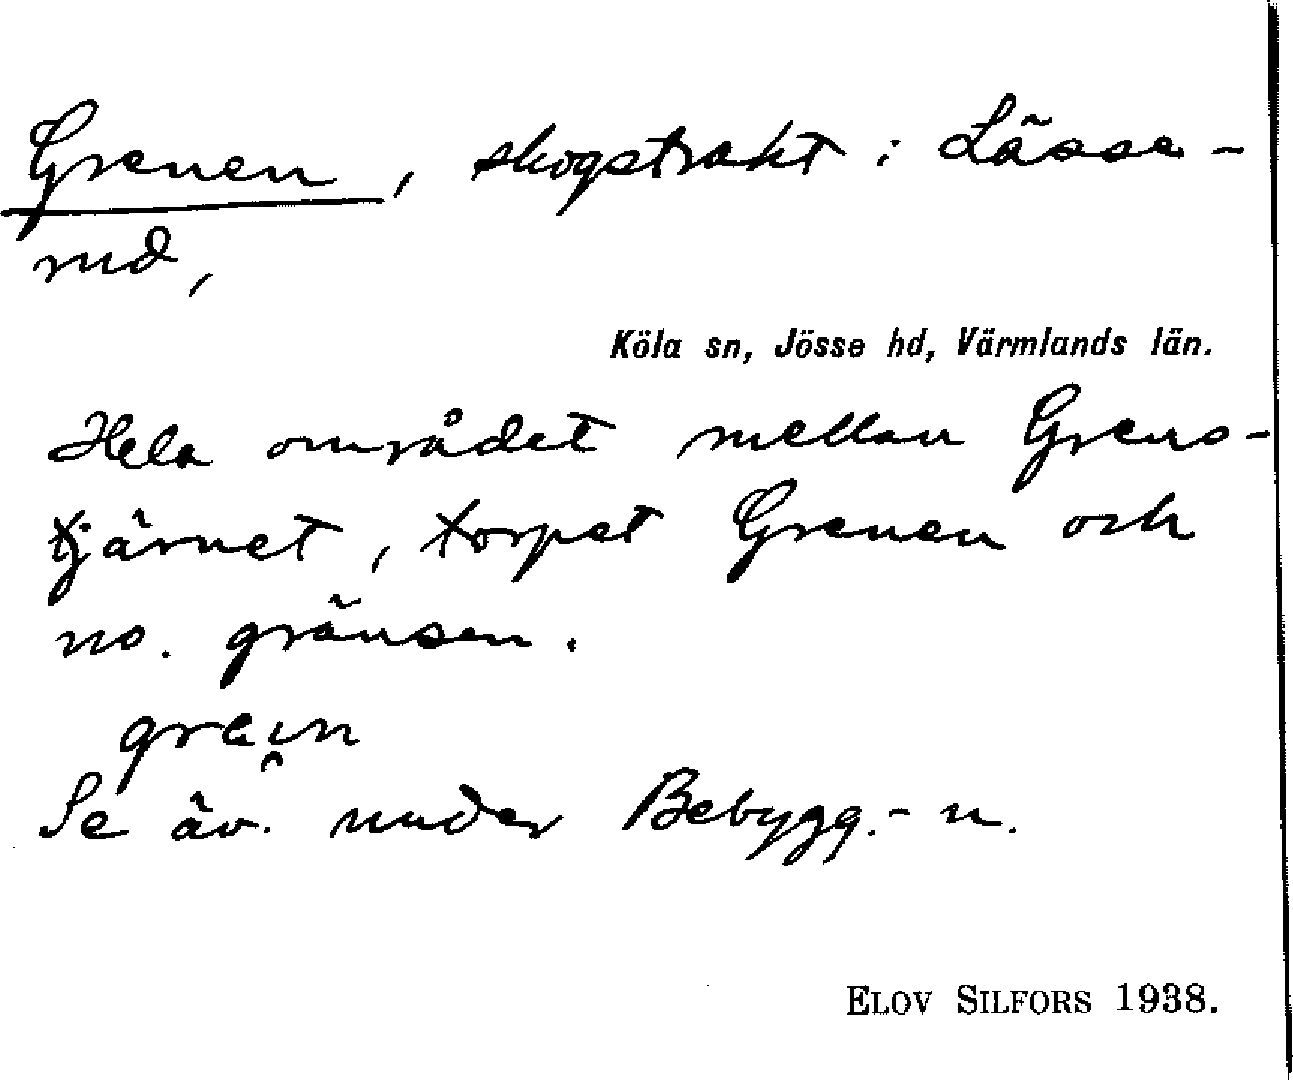 Grenen, skogstrakt i Lässe-
rud,
Köla sn, Jösse hd, Värmlands län.
Hela området mellan Grens-
tjärnet, torpet Grenen och
no. gränsen.
Se äv. under Bebygg.-n.
ELOV SILFORS 1938.